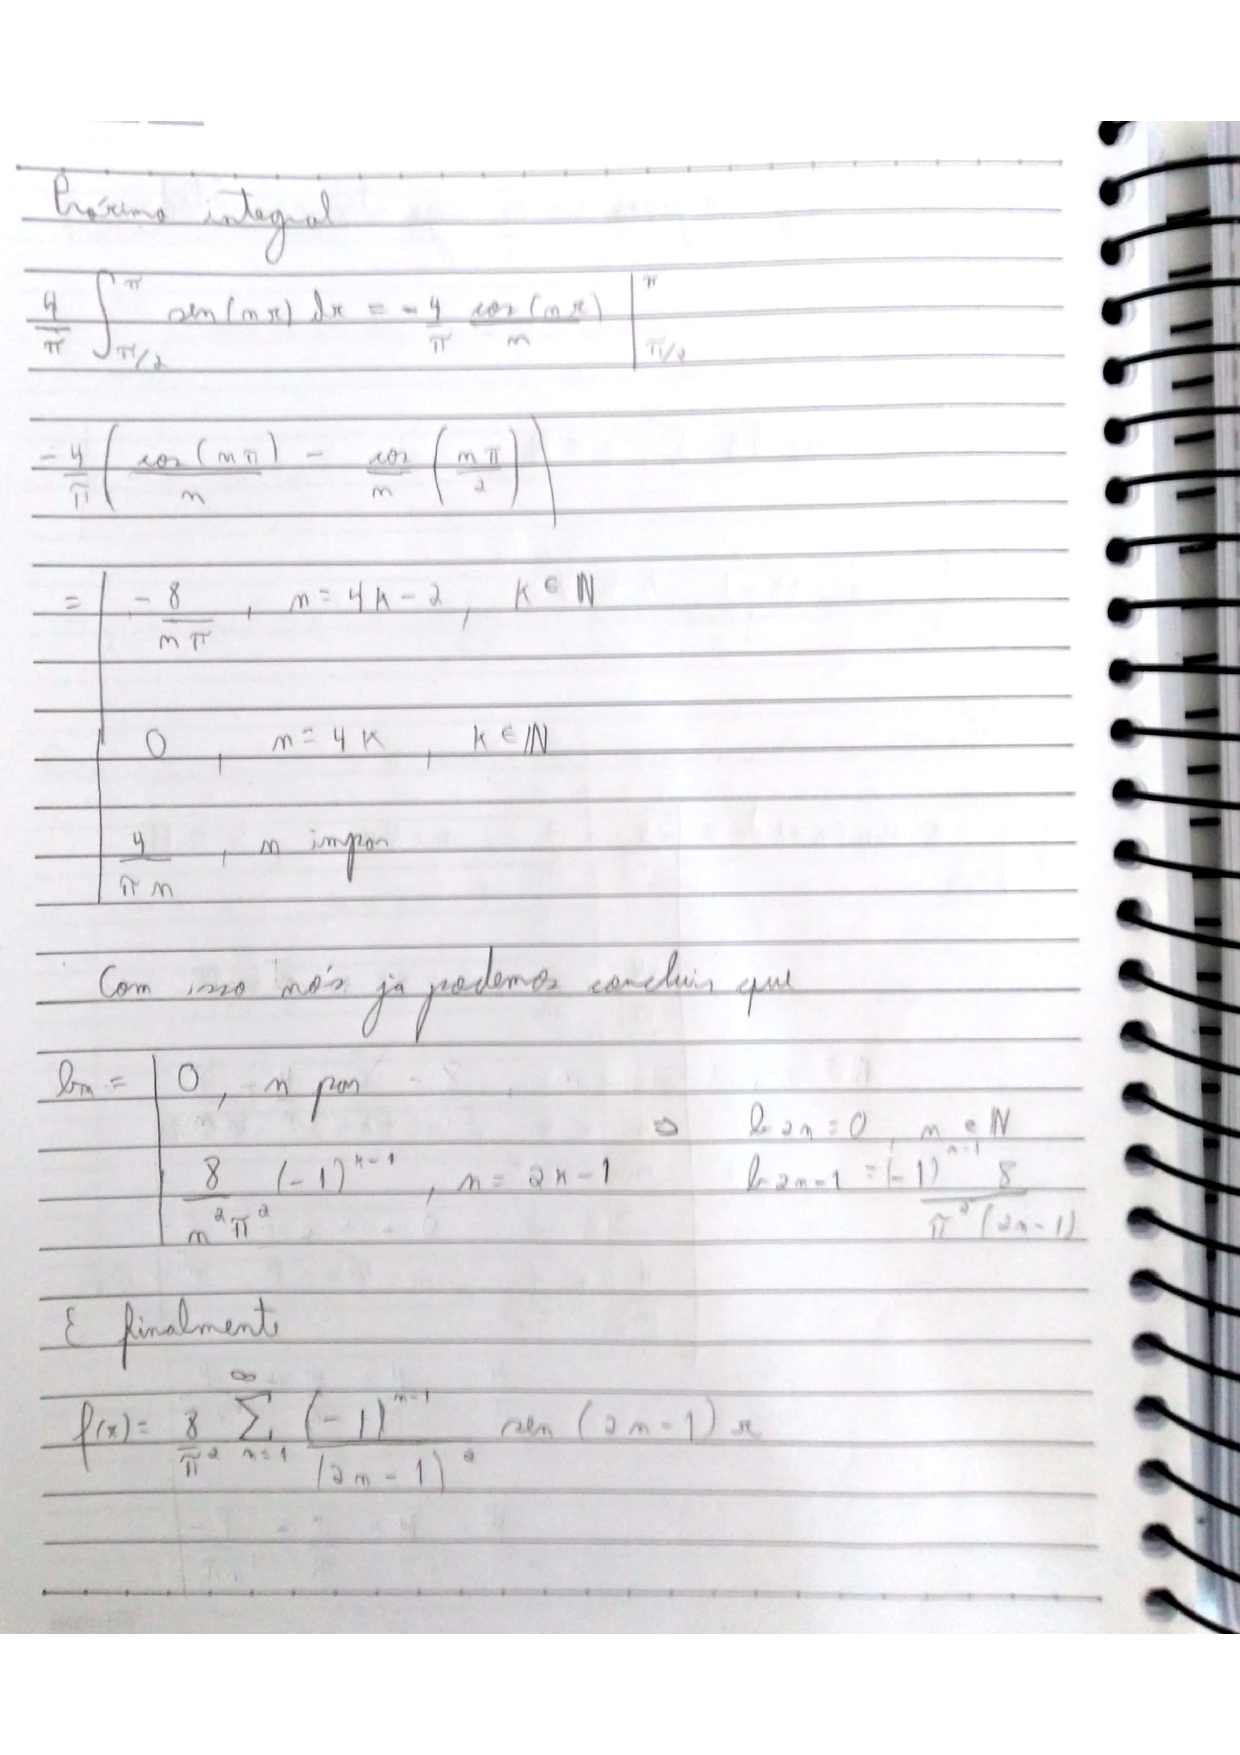 Próxima integral
4/π ∫_{π/2}^{π} sen(nx) dx = -4/π cos(nx)/n |_{π/2}^{π}
-4/π ( cos(nπ)/n - cos/n (nπ/2) )
= | -8/(nπ) , n = 4k-2 , k ∈ ℕ
0 , n = 4k , k ∈ ℕ
4/(πn) , n impar
Com isso nós já podemos concluir que
bn = | 0 , n par
8/(n²π²) (-1)^{k-1} , n = 2k-1 ⇒ b2n = 0 , n ∈ ℕ
b2n-1 = (-1)^{n-1} 8/(π²(2n-1))
E finalmente
f(x) = 8/π² ∑_{n=1}^{∞} (-1)^{n-1}/(2n-1)² sen (2n-1)x